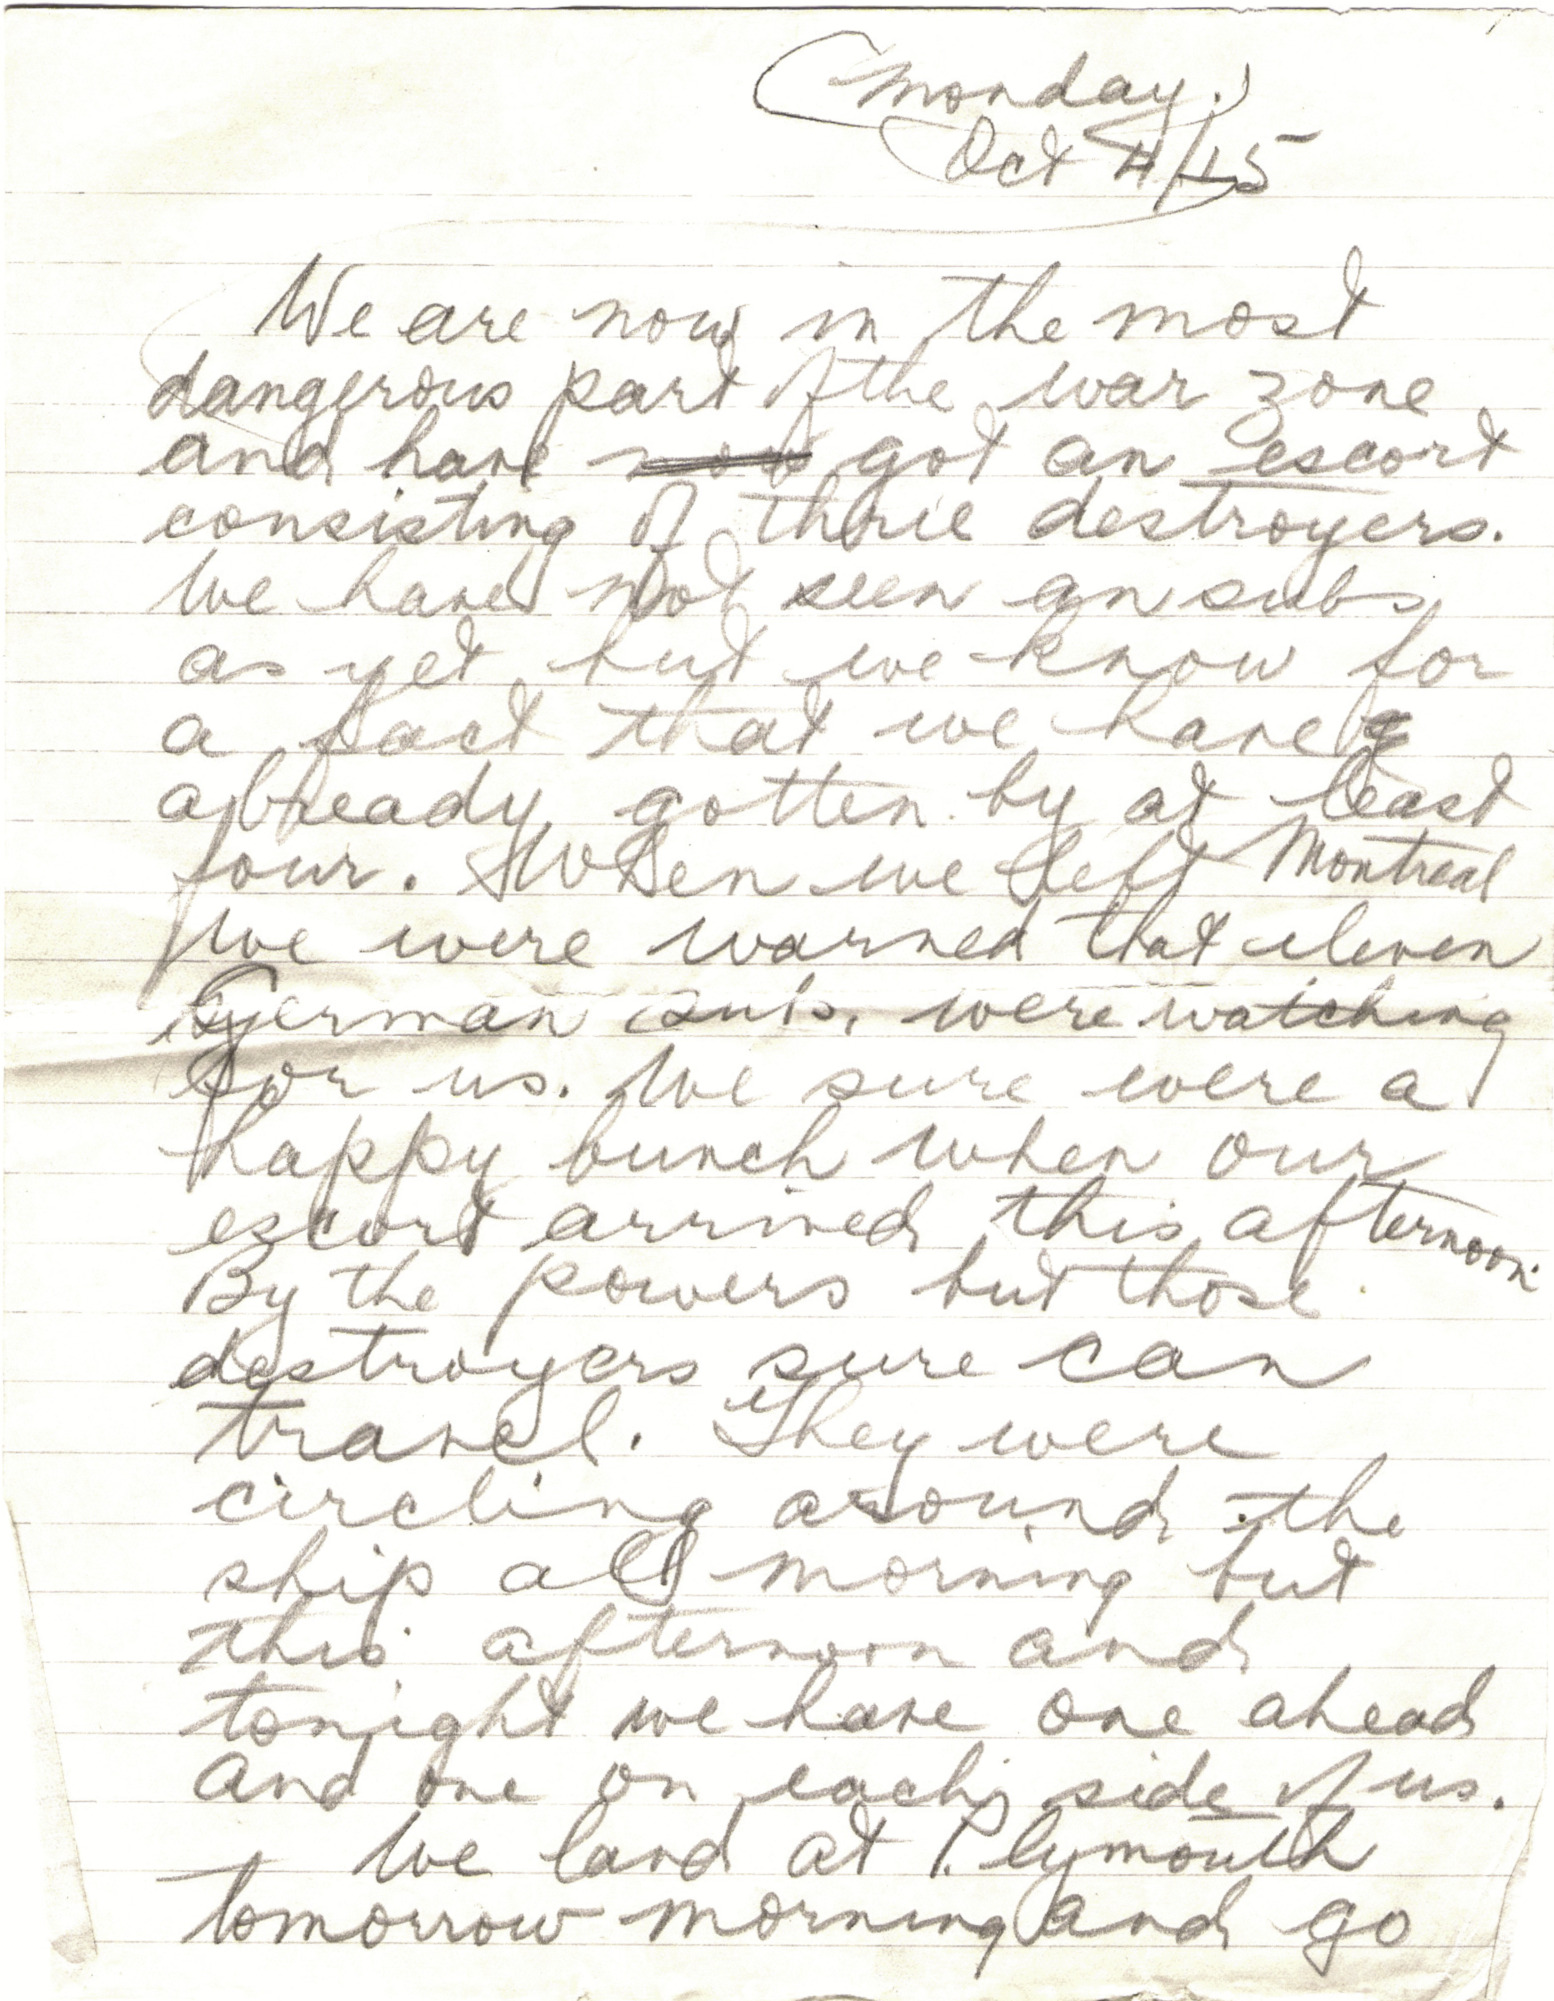 (Monday.)
Oct 4/15
We are now in the most
dangerous part of the war zone
and have now got an escort
consisting of three destroyers.
We have not seen an subs
as yet but we know for
a fact that we have
already gotten by at least
four. When we left Montreal
we were warned that eleven
German subs. were watching
for us. We sure were a
happy bunch when our
escort arrived this afternoon.
By the powers but those
destroyers sure can
travel. They were
circling around the
ship all morning but
this afternoon and
tonight we have one ahead
and one on each side of us.
We land at Plymouth
tomorrow morning and go